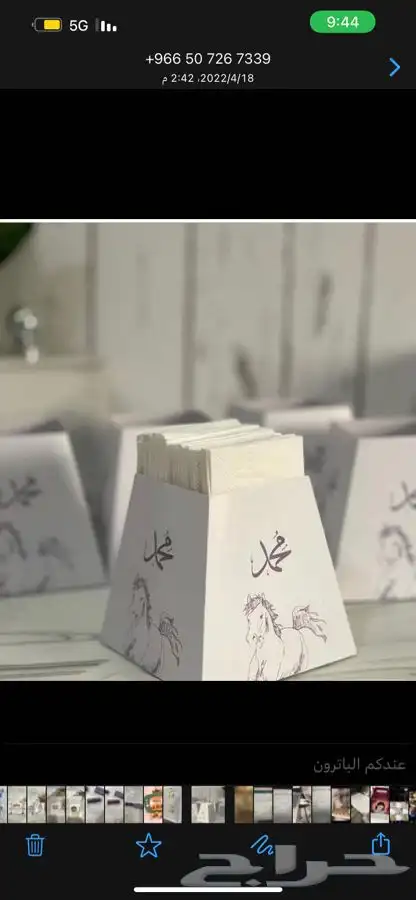 5G
9:44
+966 50 726 7339
2022/4/18، 2:42 م
محمد
محمد
عندكم الباترون
حراج